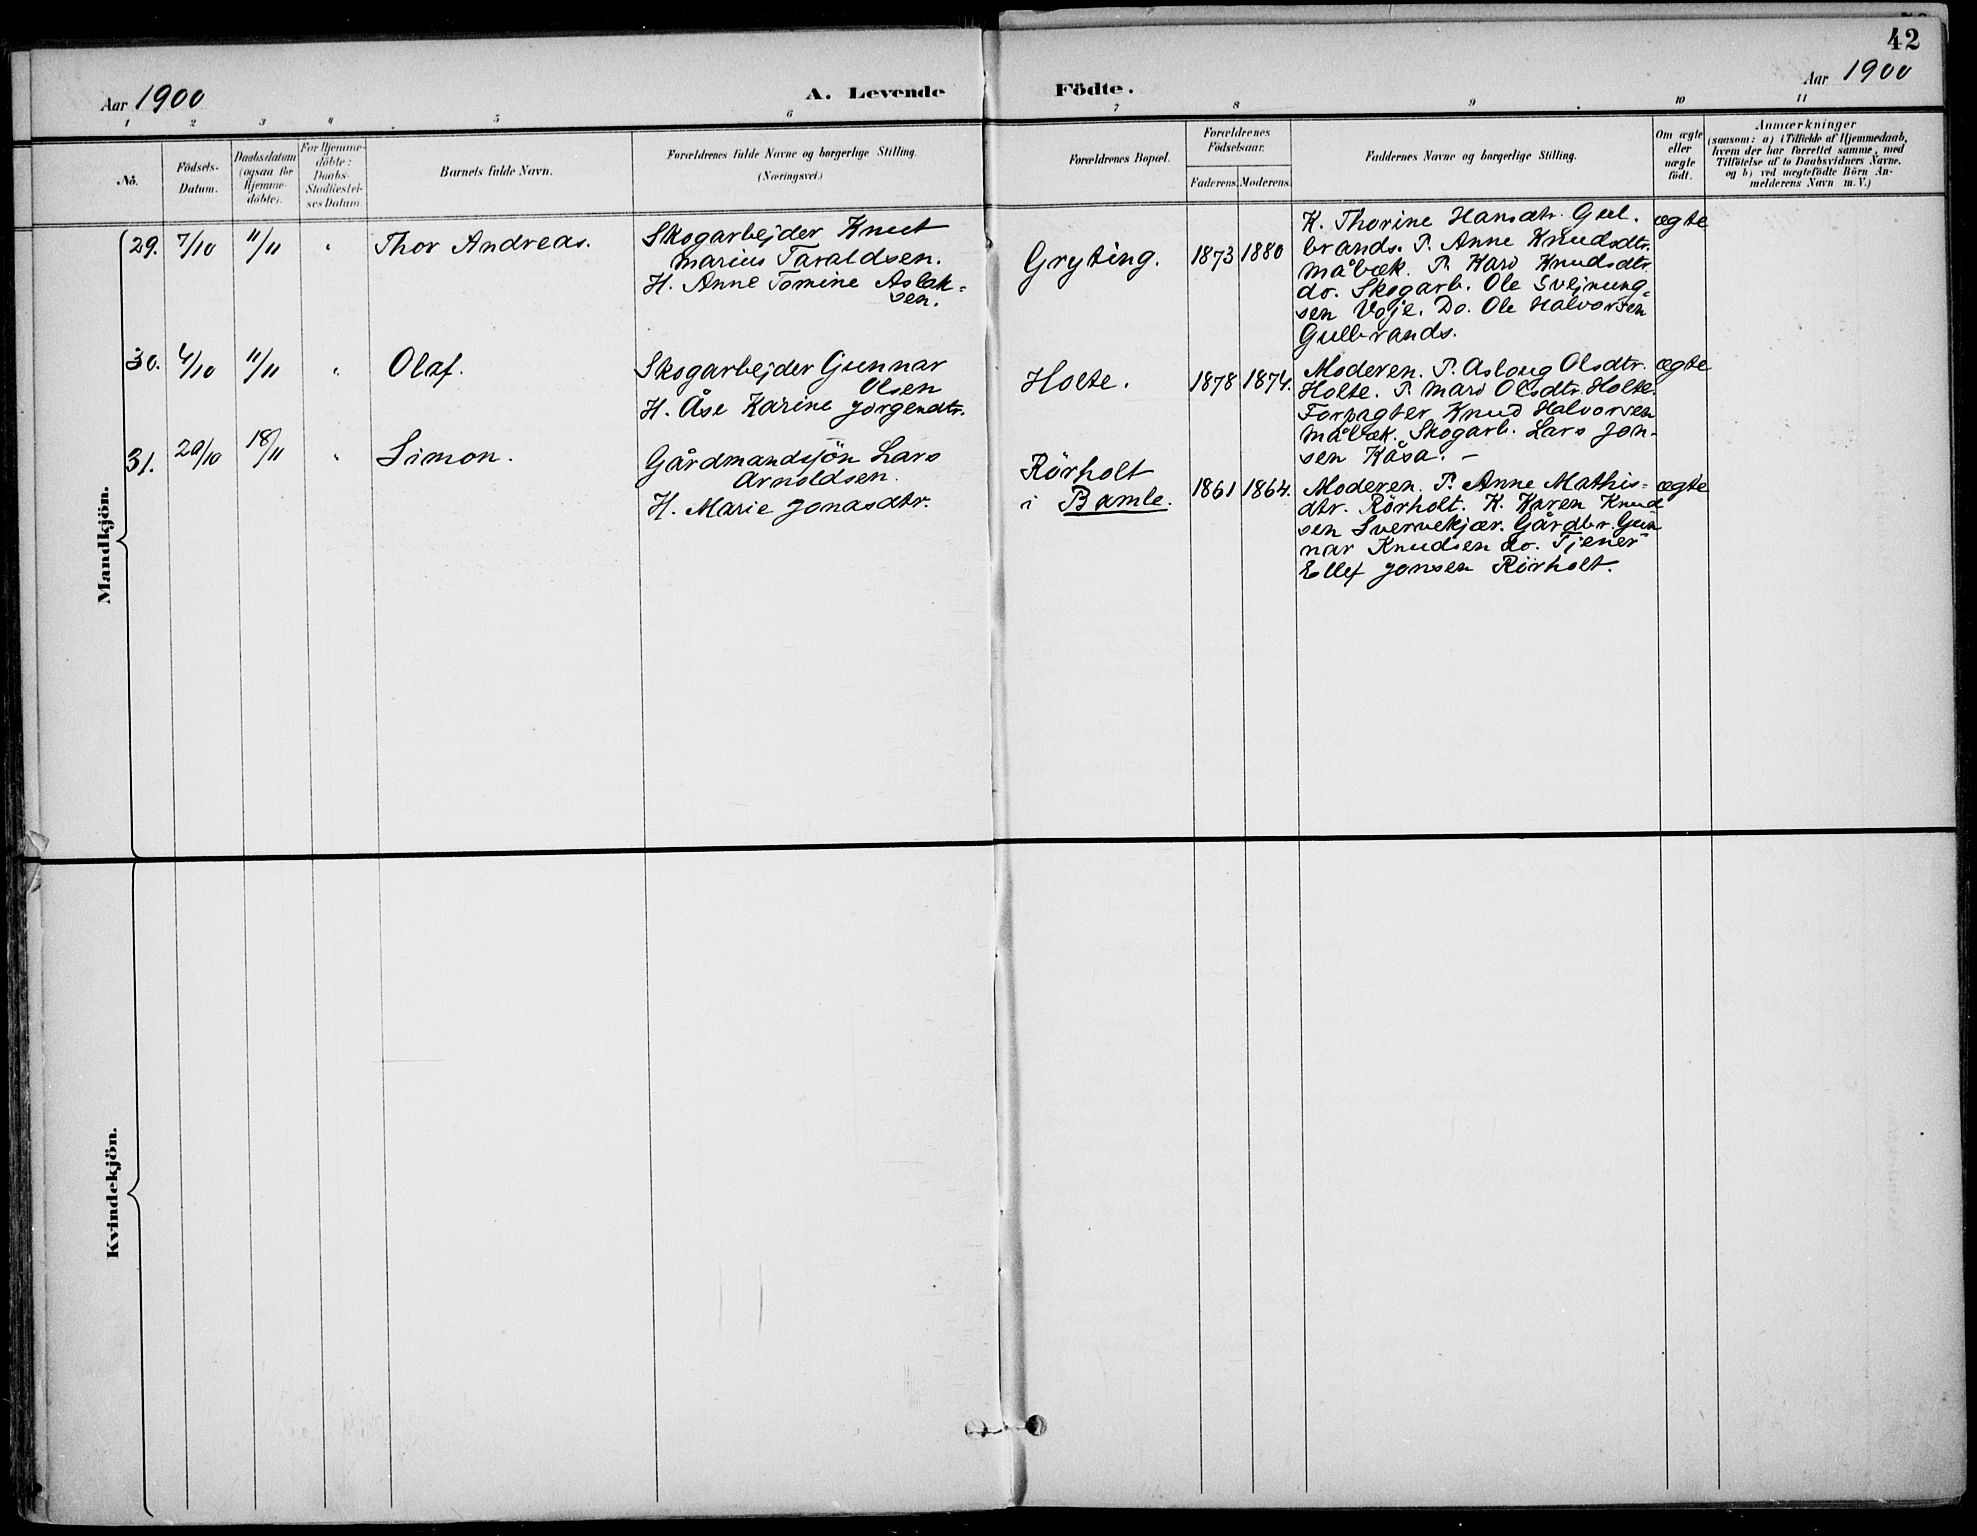 42
Aar 1900
A. Levende Födte.
Aar 1900
1 2 3 4 5 6 7 8 9 10 11
No.
Födsels-
Datum.
Daabsdatum
(ogsaa for
Hjemme-
döbte).
For Hjemme-
döbte:
Daabs-
Stadfæstel-
ses Datum.
Barnets fulde Navn.
Forældrenes fulde Navne og borgerlige Stilling.
(Næringsvei.)
Forældrenes Bopæl.
Forældrenes
Födselsaar.
Faderens. Moderens.
Faddernes Navne og borgerlige Stilling.
Om ægte
eller
uægte
födt.
Anmærkninger
(saasom: a) i Tilfælde af Hjemmedaab,
hvem der har forrettet samme, med
Tilföielse af to Daabsvidners Navne.
og b) ved uægtefödte Börn An-
melderens Navn m. V.)
Mandkjön.
29. 7/10 11/11 " Thor Andreas.
Skogarbejder Knut
Marius Taraldsen.
H. Anne Tomine Aslak-
sen.
Gryting.
1873 1880
K. Thorine Hansdtr. Gul.
brands. P. Anne Knudsdtr.
Måbæk. P. Kari Knudsdtr.
do. Skogarb. Ole Svejnung-
sen Voje. Do. Ole Halvorsen
Gulbrands.
ægte
30. 4/10 11/11 " Olaf.
Skogarbejder Gunnar
Olsen
H. Åse Karine Jörgendtr.
Holte.
1878 1874.
Moderen. P. Aslaug Olsdtr.
Holte. P. Mari Olsdtr. Holte.
Forpagter Knud Halvorsen
Måbæk. Skogarb. Lars Jon-
sen Kåsa. -
ægte
31. 20/10 18/11 " Simon.
Gårdmandssön Lars
Arnoldsen.
H. Marie Jonasdtr.
Rörholt
i Bamle.
1861 1864.
Moderen. P. Anne Mathis-
dtr. Rörholt. K. Karen Knud
sen Svervekjær. Gårdbr. Gun
nar Knudsen do. Tjener
Ellef Jonsen Rörholt.
ægte
Kvindekjön.